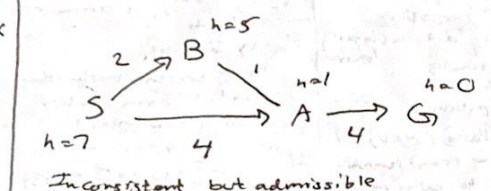 h=5
2 B 1
h=1 h=0
S A G
h=7 4 4
Inconsistent but admissible